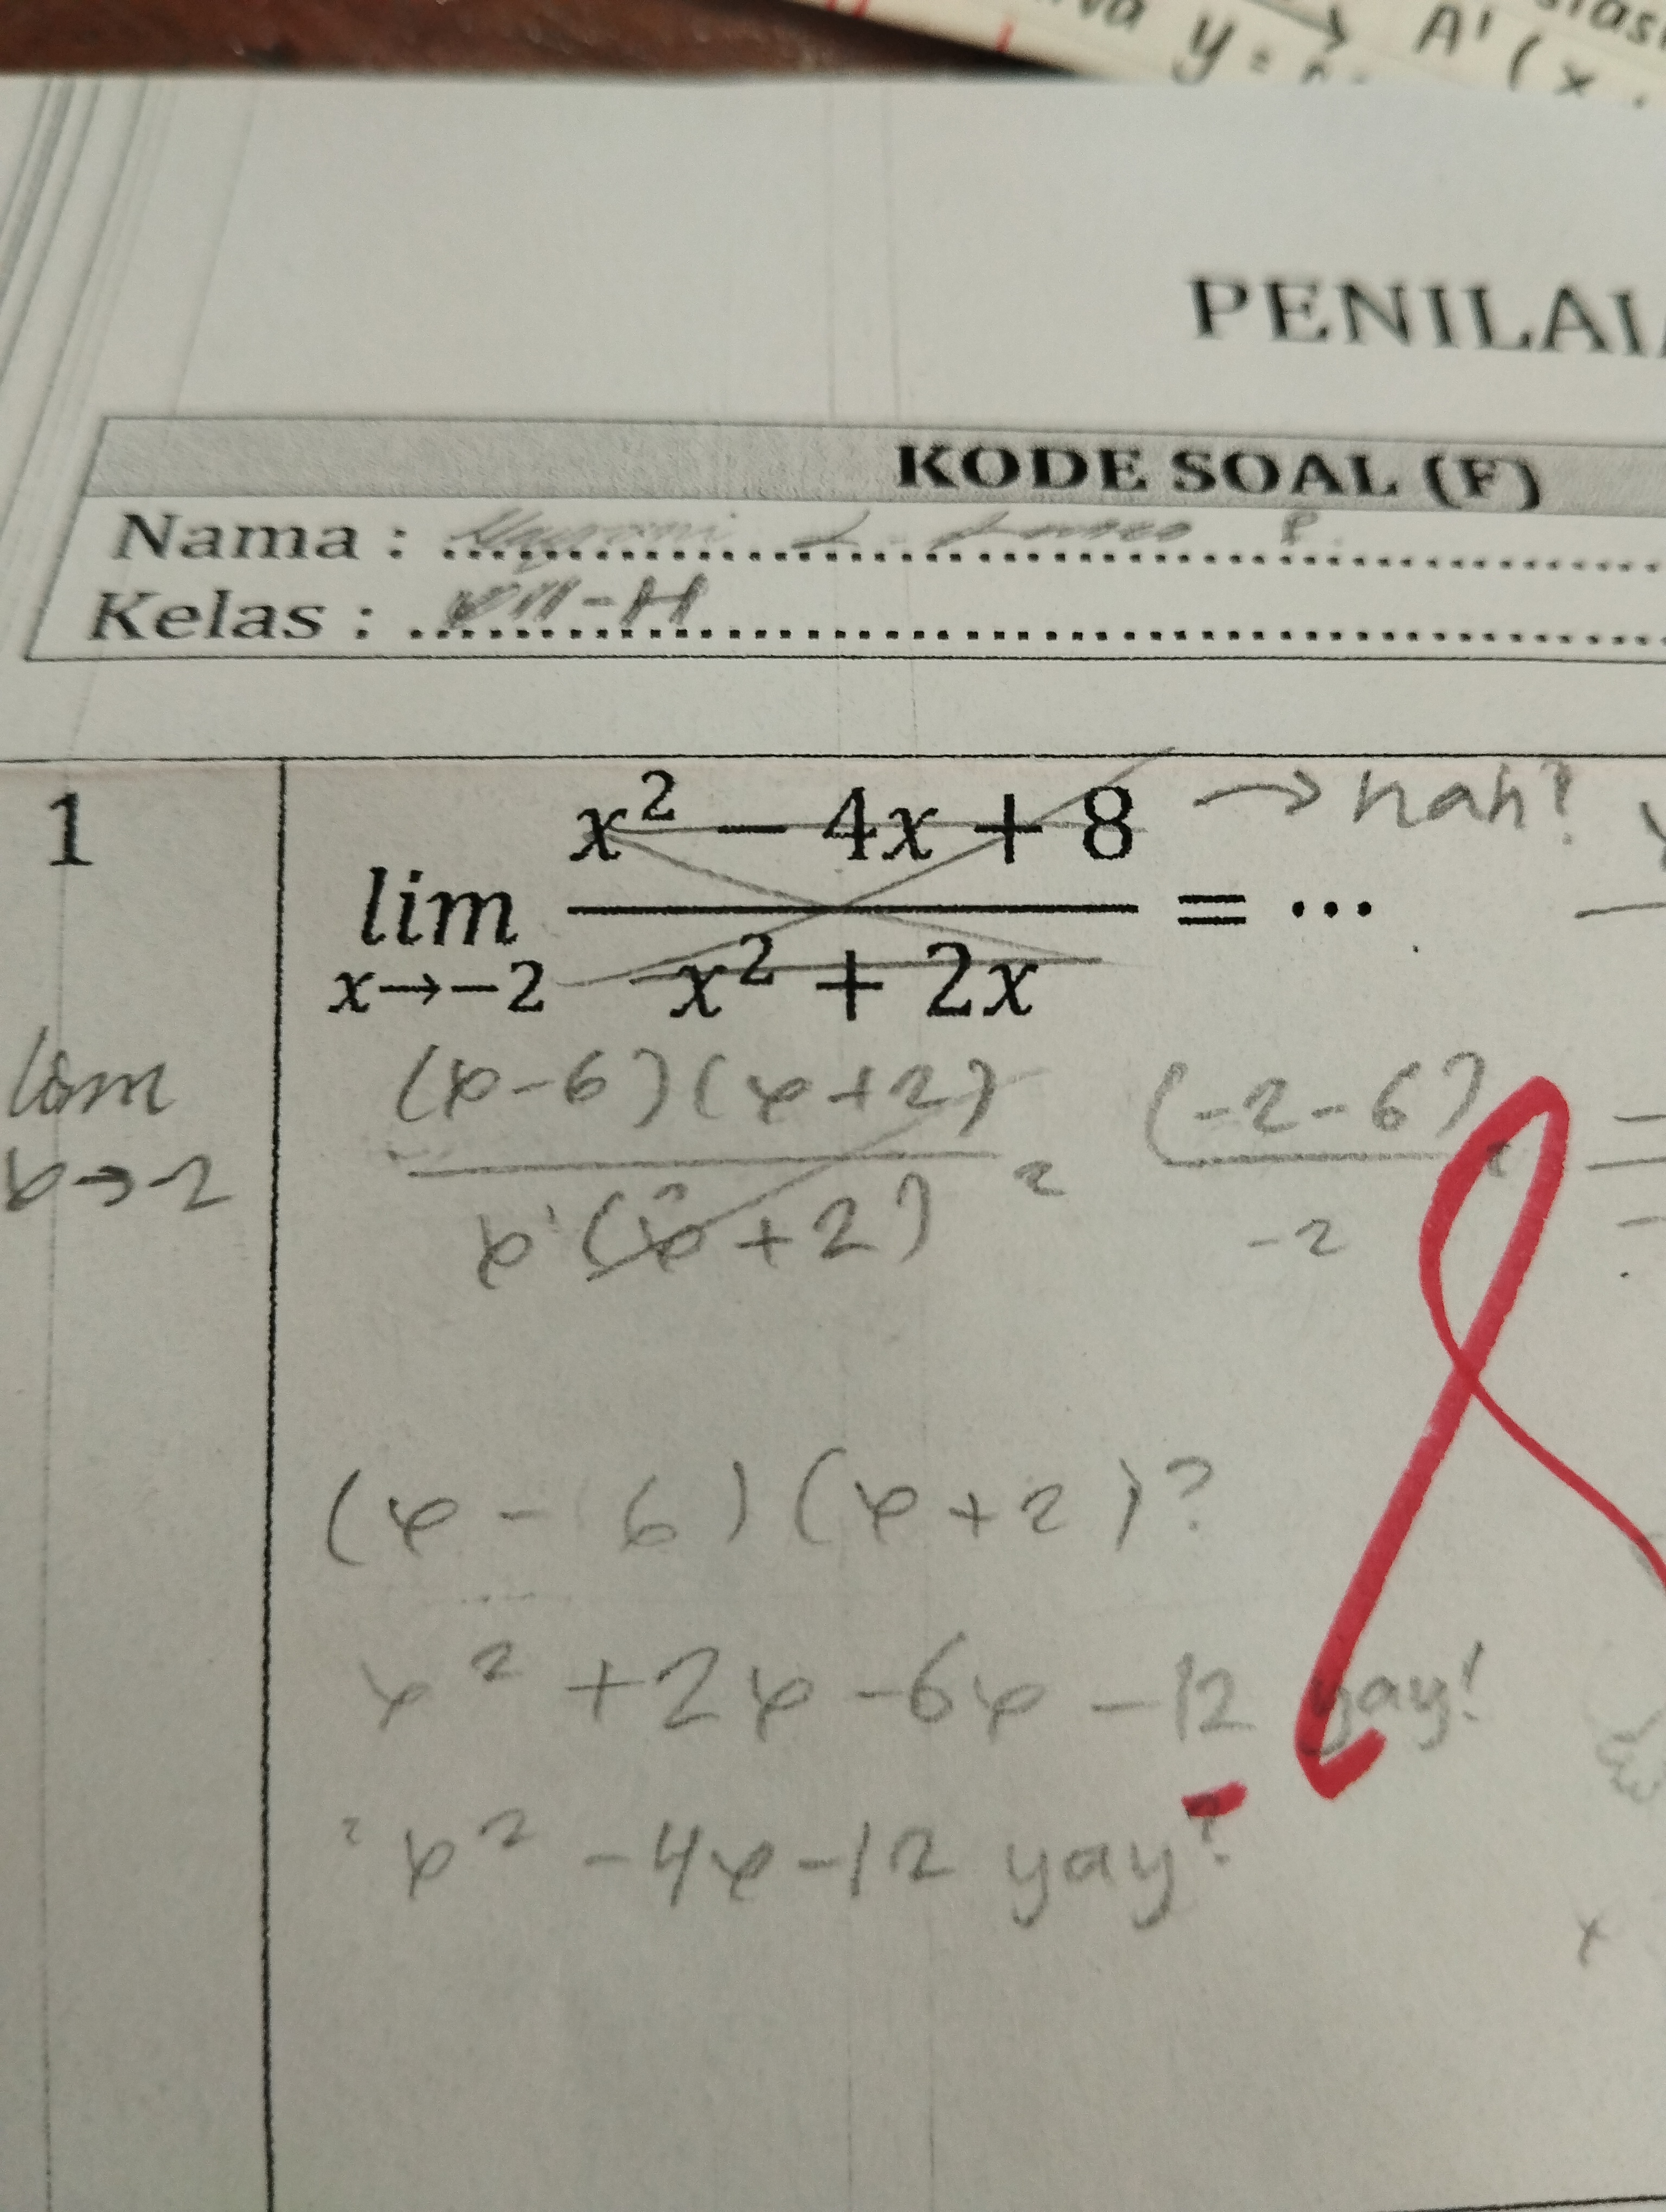 y = A' (x .
PENILAI
KODE SOAL (F)
Nama :
Kelas : VIII-H
1
lim x→-2 (x² − 4x + 8) / (x² + 2x) = ...
→ nah?
lim x→-2 (x-6)(x+2) / x(x+2) = (-2-6) / -2 =
(x - 6)(x+2)?
x² +2x -6x -12 yay!
= x² -4x -12 yay!
x